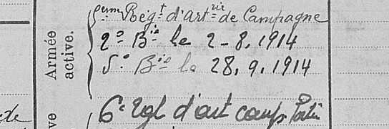 Armée active.
Regt d'Artrie de Campagne
2e Bie le 2-8.1914
5e Bie le 28.9.1914
6e Rgt d'art camp